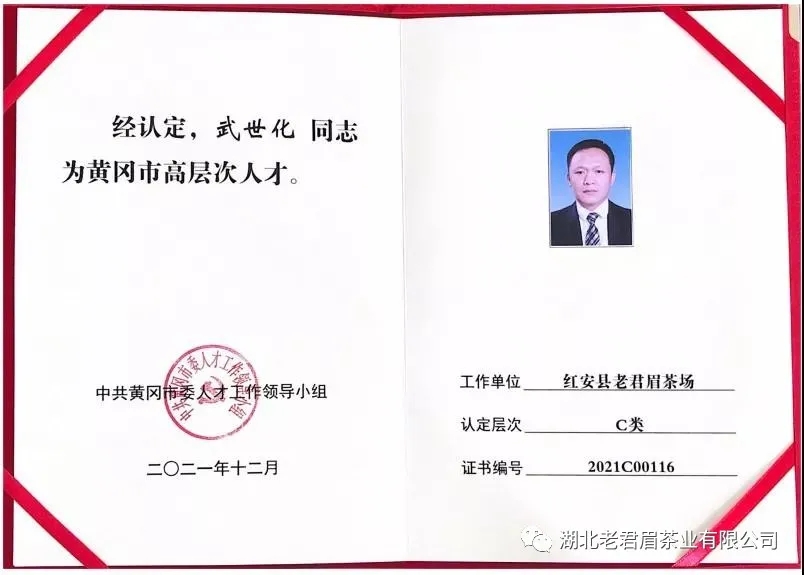 经认定，武世化 同志
为黄冈市高层次人才。
中共黄冈市委人才工作领导小组
中共黄冈市委人才工作领导小组
二〇二一年十二月
工作单位 红安县老君眉茶场
认定层次 C类
证书编号 2021C00116
湖北老君眉茶业有限公司